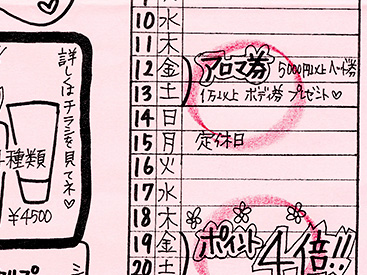 詳しくはチラシを見てネ♡
種類
¥4500
10 水
11 木
12 金 アロマ券 5000円以上
13 土 1万以上 ボディ券 プレゼント♡
14 日
15 月 定休日
16 火
17 水
18 木
19 金 ポイント4倍!!
20 土